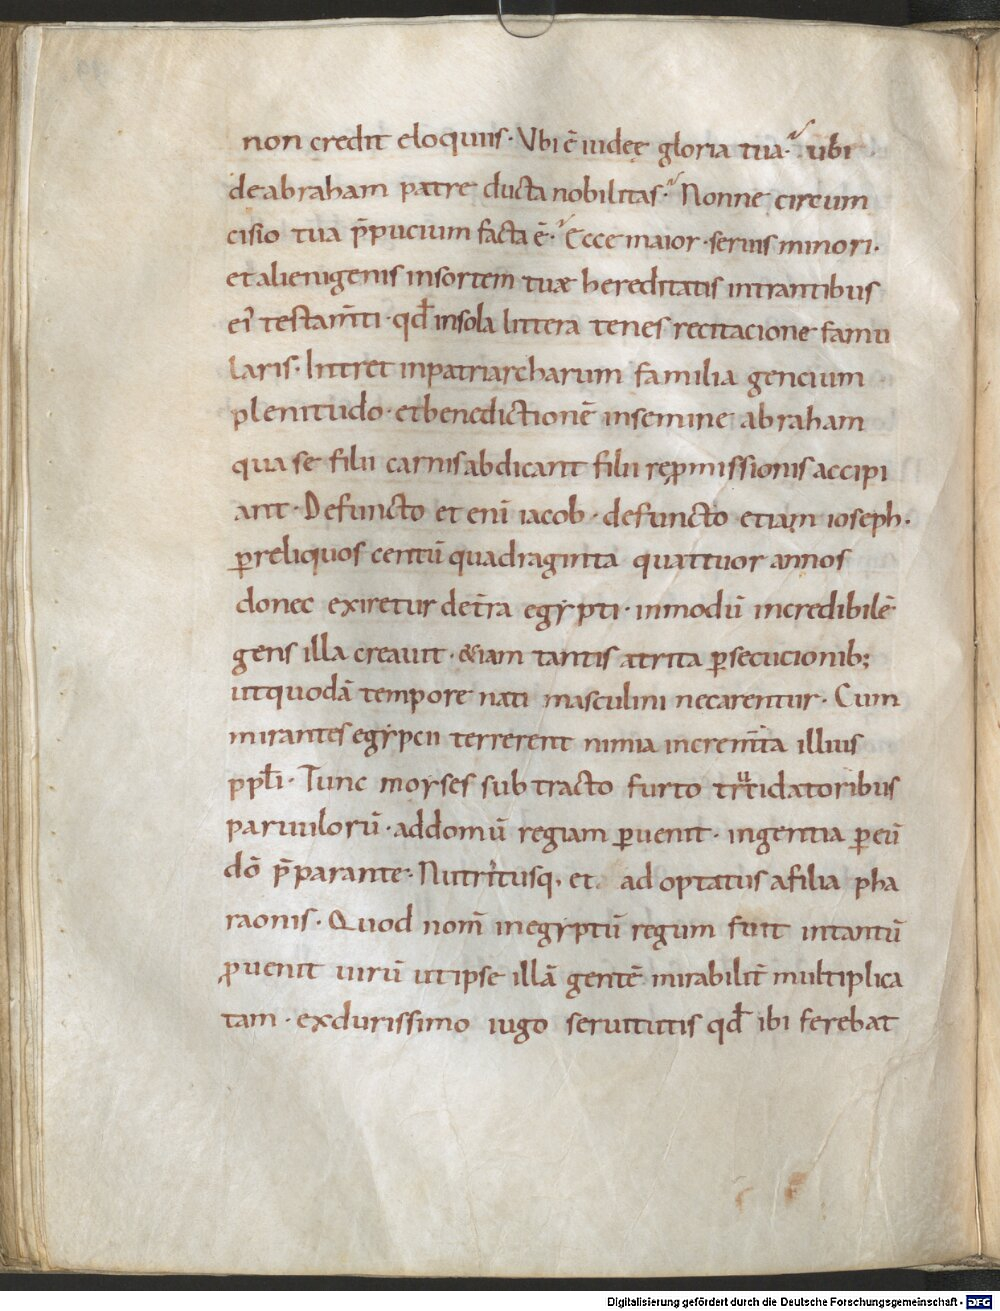 non credit eloquiis· Vbi ē iudeę gloria tua·? ubi
de abraham patre ducta nobilitas·? Nonne circum
cisio tua p̄pucium facta ē·? Ecce maior· seruus minori·
et alienigenis insortem tuæ hereditatis intrantibus
eī testam̄ti· qđ insola littera tenes recitacione famu
laris· Intret inpatriarcharum familia gencium
plenitudo· et benedictionē insemine abraham
qua se filii carnis abdicant filii rep̱missionis accipi
ant· Defuncto et enī iacob· defuncto etiam ioseph·
p̲reliquos centū quadraginta quattuor annos
donec exiretur det̄ra egypti· inmodū incredibilē
gens illa creauit· &iam tantis atrita p̲secucionib;
utquodā tempore nati masculini necarentur· Cum
mirantes egypcii terrerent nimia increm̄ta illius
pp̄łi· Tunc moyses subtracto furto trucidatoribus
paruulorū· addomū regiam p̲uenit· ingentia p̲ cū
dō p̄parante· Nutritusq, et adoptatus afilia pha
raonis· Quod nom̄ inegyptū regum fuit intantū
ꝓuenit uirū ut ipse illā gentē mirabilit̄ multiplica
tam· exdurissimo iugo seruitutis qđ ibi ferebat
Digitalisierung gefördert durch die Deutsche Forschungsgemeinschaft - DFG